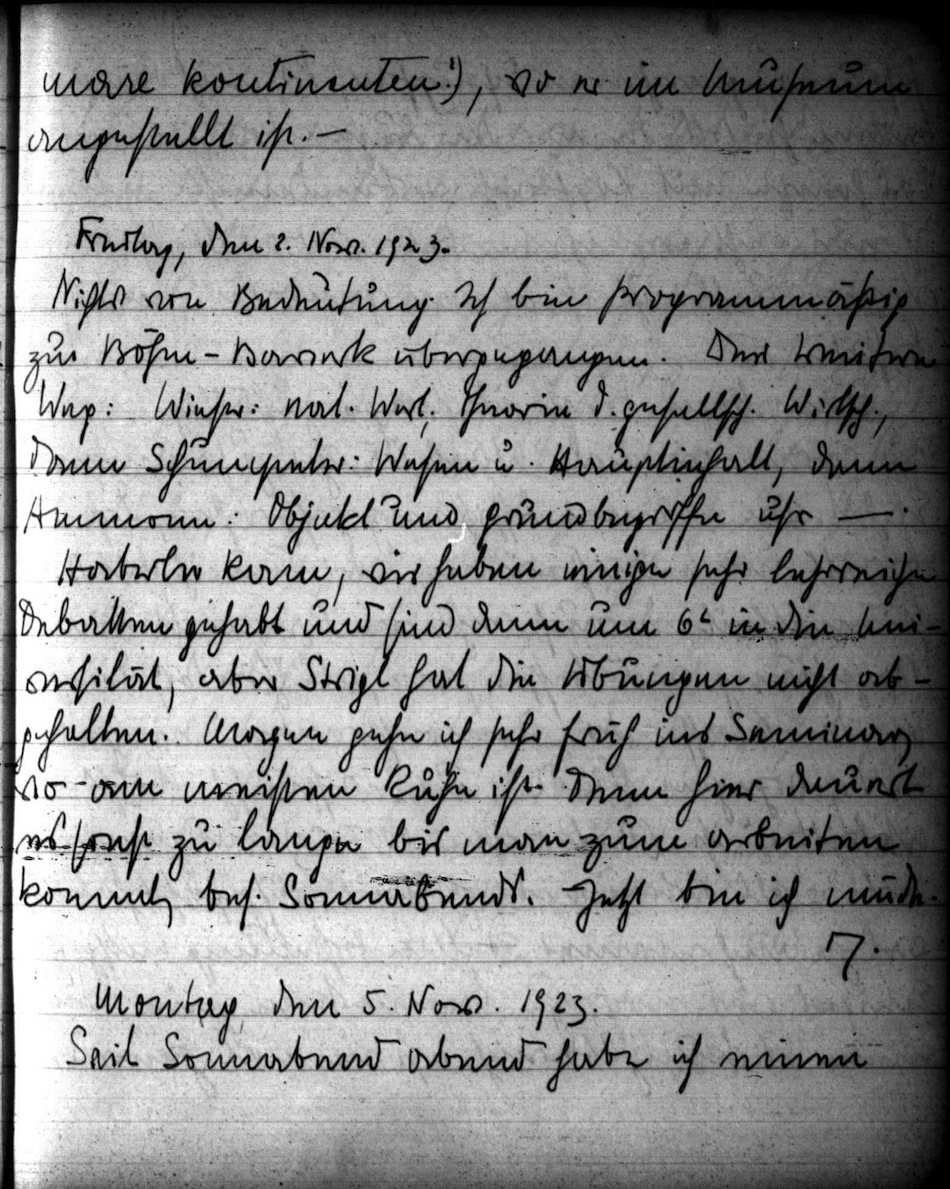 ware kontinenten!), wo er im Museum
angestellt ist. —
Freitag, den 2. Nov. 1923.
Nichts von Bedeutung. Ich bin programmäßig
zu Böhm-Bawerk übergegangen. Der weitere
Weg: Wieser: nat. Wert, Theorie d. gesellsch. Wirtsch.,
dann Schumpeter: Wesen u. Hauptinhalt, dann
Ammonn: Objekt und Grundbegriffe usw —.
Haberler kam, wir haben einige sehr lehrreiche
Debatten gehabt und sind dann um 6h in die Uni-
versität, aber Strigl hat die Übungen nicht ab-
gehalten. Morgen gehe ich sehr früh ins Seminar,
wo am meisten Ruhe ist. Denn hier dauert
es sonst zu lange bis man zum arbeiten
kommt, bes. Sonnabends. Jetzt bin ich müde.
7.
Montag, den 5. Nov. 1923.
Seit Sonnabend abend habe ich einen